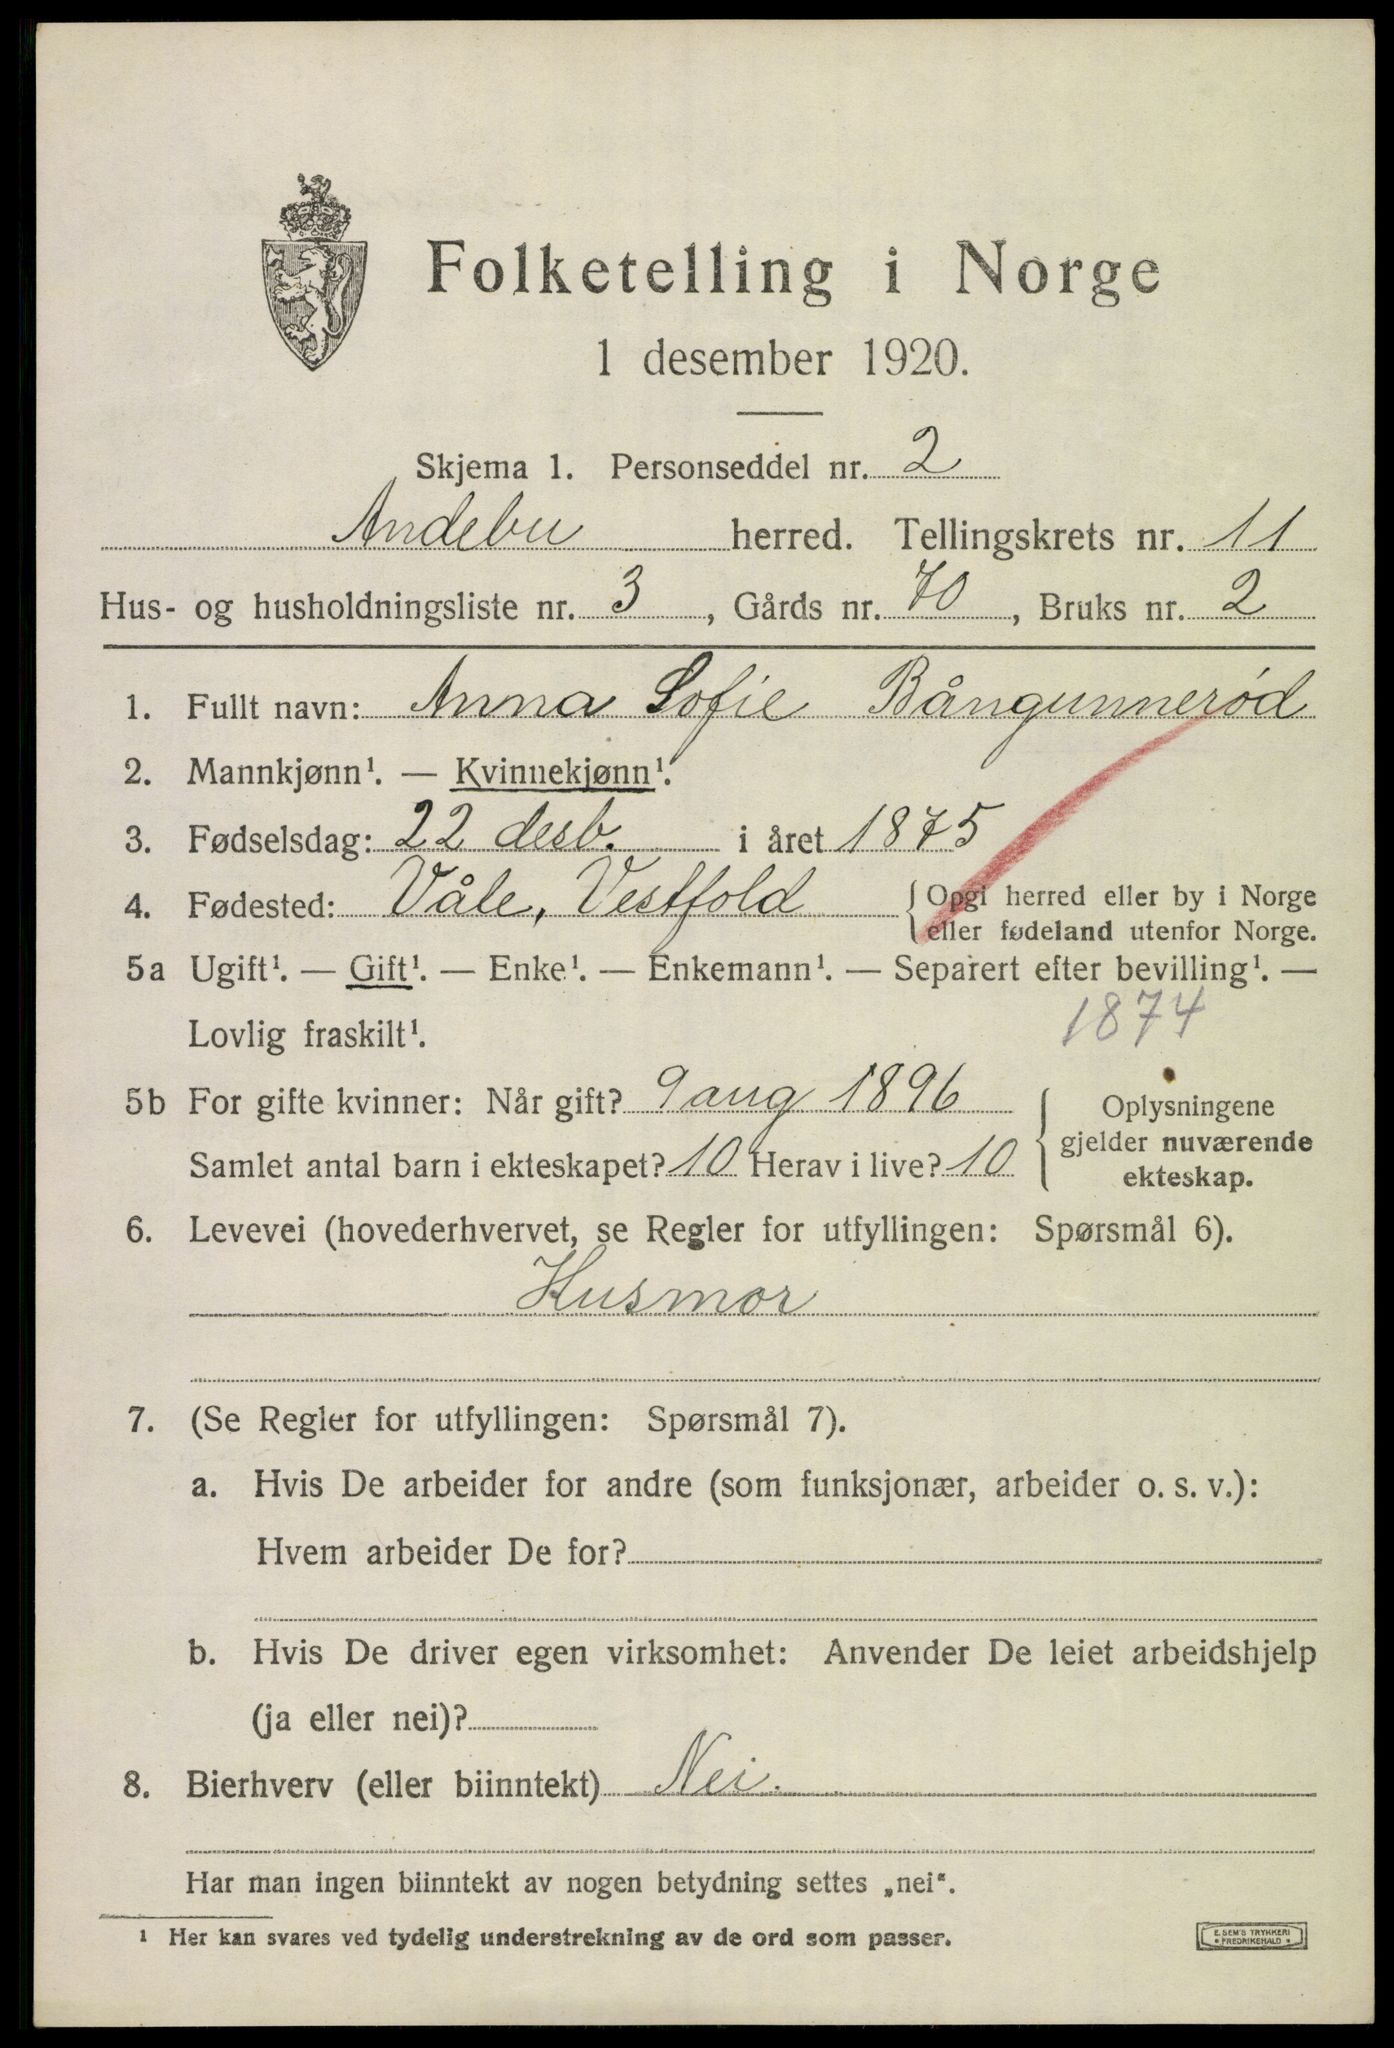 Folketelling i Norge
1 desember 1920.
Skjema 1. Personseddel nr. 2
Andebu herred. Tellingskrets nr. 11
Hus- og husholdningsliste nr. 3, Gårds nr. 70, Bruks nr. 2
1. Fullt navn: Anna Sofie Bångunnerød
2. Mannkjønn¹. — Kvinnekjønn¹.
3. Fødselsdag: 22 desb. i året 1875
4. Fødested: Våle, Vestfold { Opgi herred eller by i Norge
eller fødeland utenfor Norge.
5a Ugift¹. — Gift¹. — Enke¹. — Enkemann¹. — Separert efter bevilling¹. —
Lovlig fraskilt¹. 1874
5b For gifte kvinner: Når gift? 9 aug 1896 { Oplysningene
gjelder nuværende
Samlet antal barn i ekteskapet? 10 Herav i live? 10 ekteskap.
6. Levevei (hovederhvervet, se Regler for utfyllingen: Spørsmål 6).
Husmor
7. (Se Regler for utfyllingen: Spørsmål 7).
a. Hvis De arbeider for andre (som funksjonær, arbeider o. s. v.):
Hvem arbeider De for?
b. Hvis De driver egen virksomhet: Anvender De leiet arbeidshjelp
(ja eller nei)?
8. Bierhverv (eller biinntekt) Nei.
Har man ingen biinntekt av nogen betydning settes „nei“.
¹ Her kan svares ved tydelig understrekning av de ord som passer.
E. SEM'S TRYKKERI
• FREDRIKSHALD •